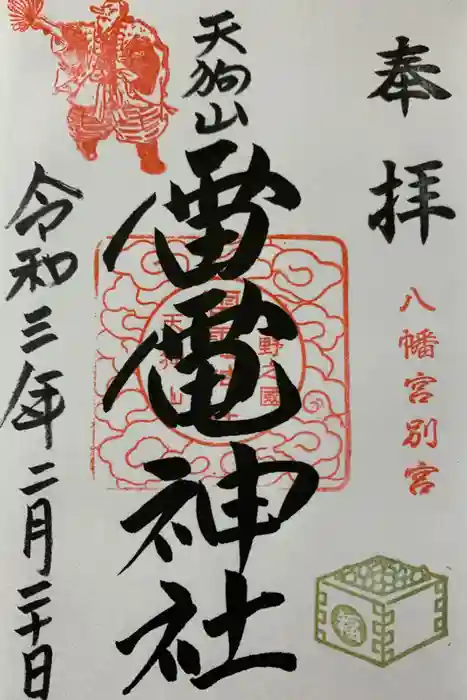 奉拝
八幡宮別宮
福
天狗山
雷電神社
令和三年二月二十日